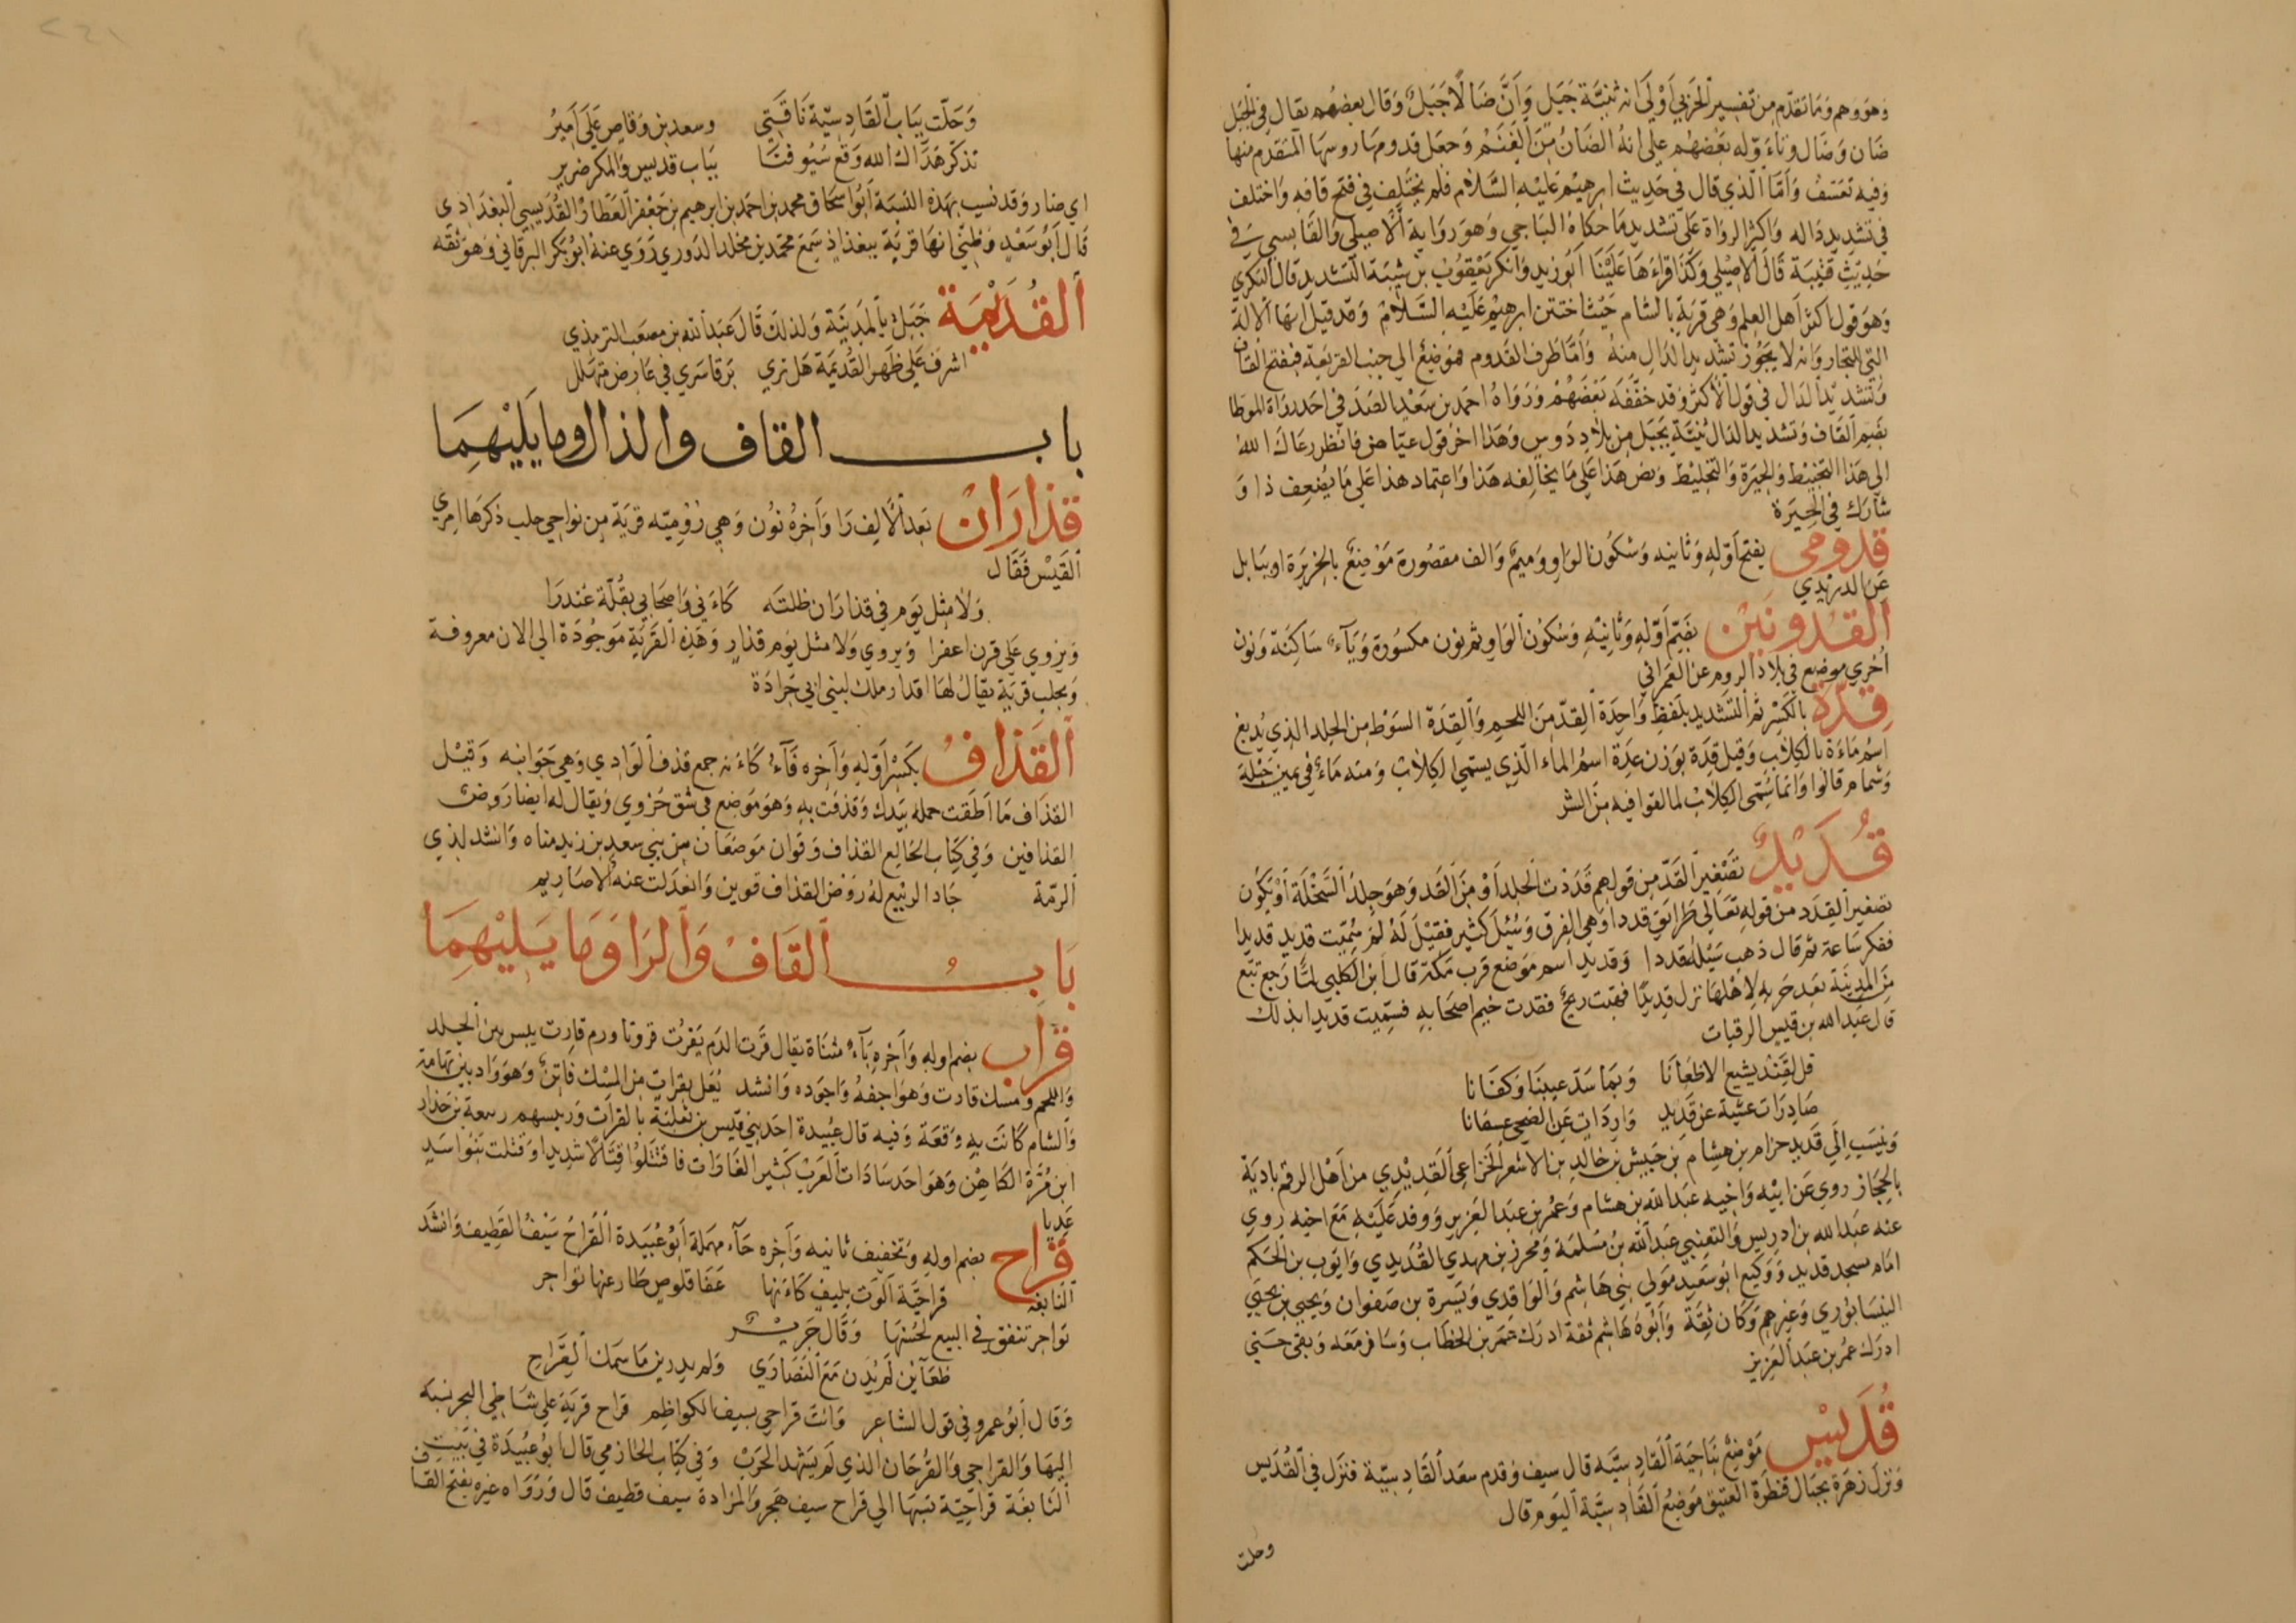 وهو وهم وما تقدم من تفسير الحربي أولى انه ثنية جبل وان ضالا جبل وقال بعضهم يقال في الجبل
ضان وضال وتاءوله بعضهم على انه الضان من الغنم وجعل قدومها روسها المتقدم منها
وفيه تعسف واما الذي قال في حديث ابرهيم عليه السلام فلم يختلف في فتح قافه واختلف
في تشديد داله واكثر الرواة على تشديد ما حكاه الباجي وهو رواية الاصيلي والقابسي في
حديث قتيبة قال الاصيلي وكذا قراءها علينا ابو زيد وانكر يعقوب بن شيبة التشديد قال البكري
وهو قول اكثر اهل العلم وهي قرية بالشام حيث اختتن ابرهيم عليه السلام وقد قيل انها الالة
التي للنجار وانه لا يجوز تشديد الدال منه واما طرف القدوم فموضع الي جنب القريعة فبفتح القاف
وتشديد الدال في قول الاكثر وقد خففه بعضهم ورواه احمد بن سعيد الصدفي احد رواة الموطا
بضم القاف وتشديد الدال ثنية بجبل من بلاد دوس وهذا اخر قول عياض فانظر رعاك الله
الي هذا التخبيط والحيرة والتخليط ونص هذا علي ما يخالفه هذا واعتماد هذا علي ما يضعف ذا و
شارك في الحيرة
قدومى بفتح اوله وثانيه وسكون الواو وميم والف مقصورة موضع بالجزيرة او ببابل
عن الدريدي
القدونين بضم اوله وثانيه وسكون الواو ثم نون مكسورة وياء ساكنة ونون
اخري موضع في بلاد الروم عن العمراني
قدة بالكسر ثم التشديد بلفظ واحدة القد من اللحم والقدة السوط من الجلد الذي يدبغ
اسم ماءة بالكلاب وقيل قدة بوزن عدة اسم الماء الذي يسمي الكلاب ومنه ماء في يمين جبلة
وشمام قالوا وانما سمي الكلاب لما لقوا فيه من الشر
قديد تصغير القد من قولهم قددت الجلد او من القد وهو جلد السخلة او يكون
تصغير القدد من قوله تعالي طرائق قددا وهي الفرق وسئل كثير فقيل له لم سميت قديد قديدا
ففكر ساعة ثم قال ذهب سيله قددا وقديد اسم موضع قرب مكة قال ابن الكلبي لما رجع تبع
من المدينة بعد حربه لاهلها نزل قديدا فهبت ريح فقدت خيم اصحابه فسميت قديدا بذلك
قال عبد الله بن قيس الرقيات
قل لقند يشيع الاظعانا وبما سد عيبنا وكفانا
صادرات عشية عن قديد واردات عن الضحي عسفانا
ونسب الي قديد حزام بن هشام بن حبيش بن خالد بن الاشعر الخزاعي القديدي من اهل الرقم بادية
بالحجاز روي عن ابيه واخيه عبد الله بن هشام وعمر بن عبد العزيز ووفد عليه مع اخيه روي
عنه عبد الله بن ادريس والقعنبي عبد الله بن مسلمة ومحرز بن مهدي القديدي وايوب بن الحكم
امام مسجد قديد ووكيع ابو سعيد مولي بني هاشم والواقدي ويسرة بن صفوان ويحيي بن يحيي
النيسابوري وغيرهم وكان ثقة وابوه هاشم ثقة ادرك عمر بن الخطاب وسافر معه وبقي حتي
ادرك عمر بن عبد العزيز
قديس موضع بناحية القادسية قال سيف وقدم سعد القادسية فنزل في القديس
ونزل زهرة بحبال قنطرة العتيق موضع القادسية اليوم قال
وحلت
وحلت بباب القادسية ناقتي وسعد بن وقاص علي امير
تذكر هداك الله وقع سيوفنا بباب قديس والمكر ضرير
اي ضار وقد نسب بهذه النسبة ابو اسحاق محمد بن احمد بن ابرهيم بن جعفر العطار القديسي البغدادي
قال ابو سعيد وظني انها قرية ببغداذ سمع محمد بن مخلد الدوري روي عنه ابو بكر البرقاني وهو ثقه
القديمة جبل بالمدينة ولذلك قال عبد الله بن مصعب الترمذي
اشرف علي ظهر القديمة هل تري برقا سري في عارض متهلل
باب القاف والذال وما يليهما
قذاران بعد الالف را واخره نون وهي روميه قرية من نواحي حلب ذكرها امري
القيس فقال
ولا مثل يوم في قذاران ظلته كاءني واصحابي بقلة عندرا
ويروي علي قرن اعفرا ويروي ولا مثل يوم قذار وهذه القرية موجودة الي الان معروفة
وبحلب قرية يقال لها اقذار ملك لبني ابي جرادة
القذاف بكسر اوله واخره فاء كاءنه جمع قذف الوادي وهي جوانبه وقيل
القذاف ما اطقت حمله بيدك وقذفت به وهو موضع في شق حزوي ويقال له ايضا روض
القذافين وفي كتاب الخالع القذاف وقوان موضعان من بني سعد بن زيد مناه وانشد لذي
الرمة جاد الربيع له روض القذاف قوين وانعدلت عنه الاصاريم
باب القاف والرا وما يليهما
قراب بضم اوله واخره باء مثناة يقال قرت الدم يقرت قروتا ودم قارت يبس بين الجلد
واللحم ومسك قارت وهو اجفه واجوده وانشد يعل بقرات من المسك فاتن وهو واد بين تهامة
والشام كانت به وقعة وفيه قال عبيدة احد بني قيس بن ثعلبة بالقرات وريسهم ربيعة بن حذار
ابن مرة الكاهن وهو احد سادات العرب كثير الغارات فاقتتلوا قتالا شديدا وقتلت بنوا سيد
عديا
قراح بضم اوله وتخفيف ثانيه واخره حاء مهملة ابو عبيدة القراح سيف القطيف وانشد
النابغة قراحية الوت بليف كاءنها عفا قلوص طار عنها تواجر
تواجر تنفق في البيع لحسنها وقال جرير
ظعاين لم يدن مع النصاري ولم يدرين ما سمك القراح
وقال ابو عمرو في قول الشاعر وانت قراحي بسيف الكواظم قراح قرية علي شاطي البحر نسبه
اليها والقراحي والقرحان الذي لم يشهد الحرب وفي كتاب الحازمي قال ابو عبيدة في بيت
النابغة قراحية نسبها الي قراح سيف هجر والزارة سيف قطيف قال ورواه غيره بفتح القاف